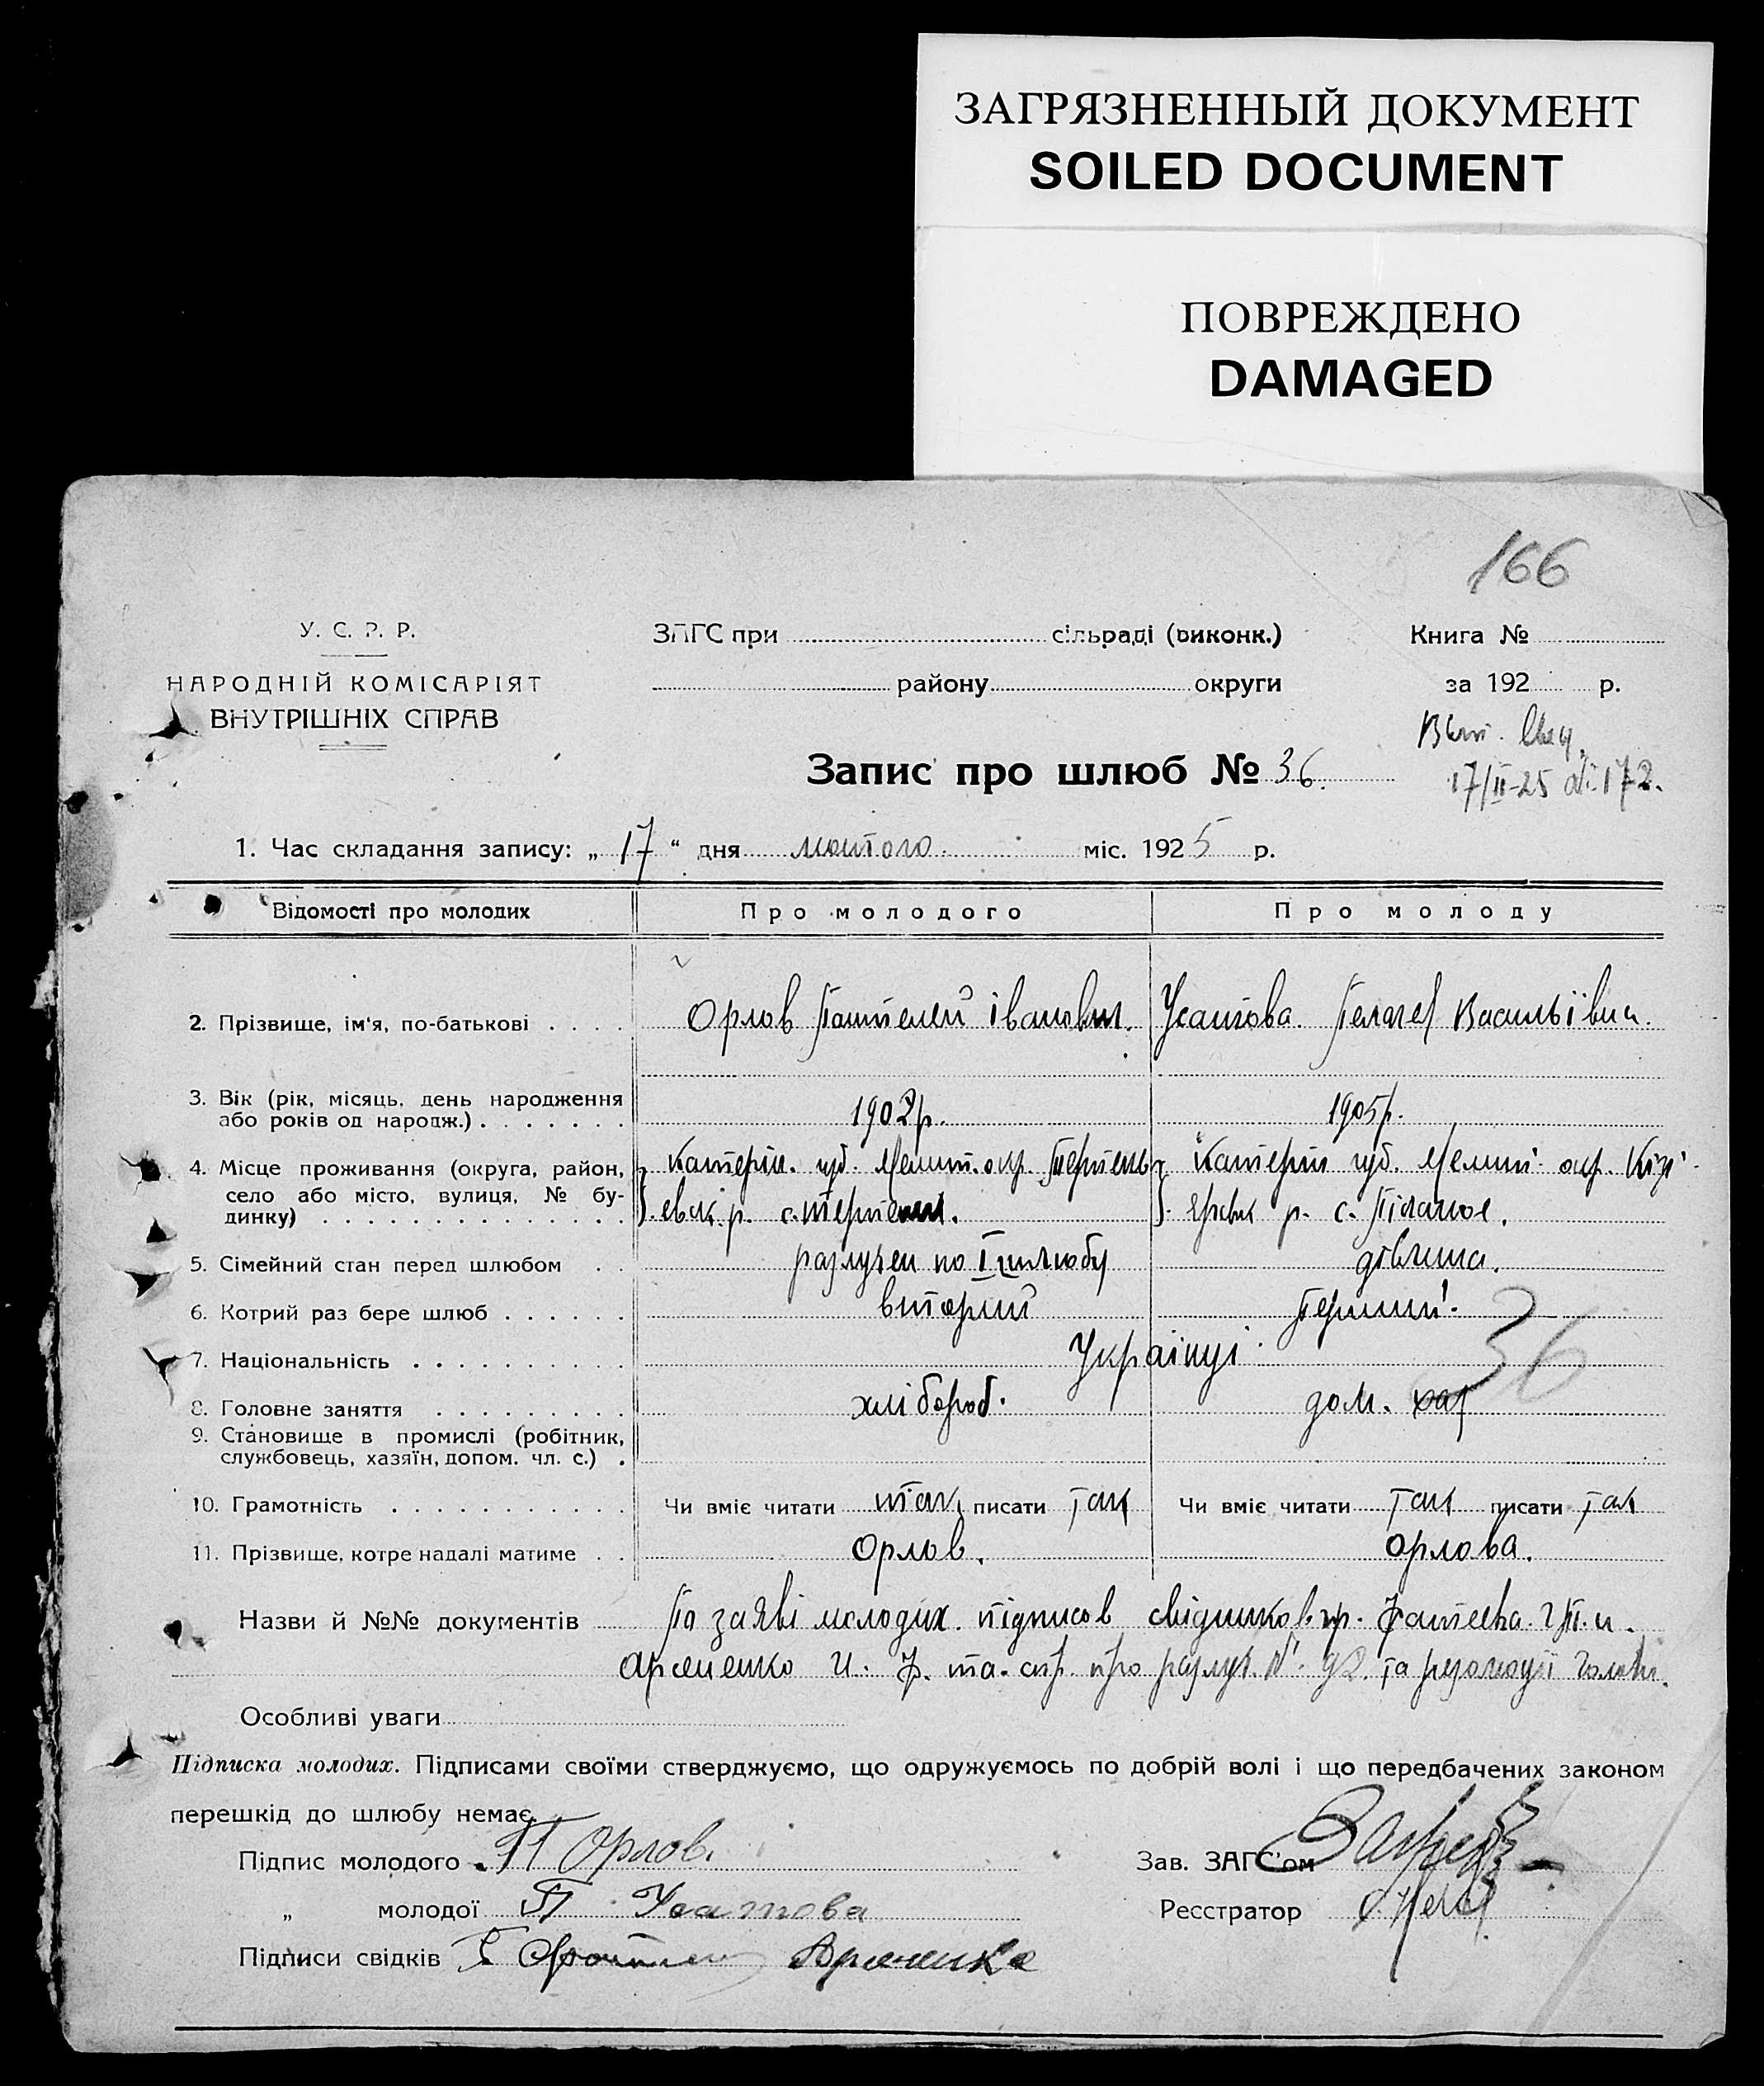 ЗАГРЯЗНЕННЫЙ ДОКУМЕНТ
SOILED DOCUMENT
ПОВРЕЖДЕНО
DAMAGED
166
У. С. Р. Р.
НАРОДНІЙ КОМІСАРІЯТ
ВНУТРІШНІХ СПРАВ
ЗАГС при сільраді (виконк.)
району округи
Книга №
за 192 р.
17/II-25 172.
Запис про шлюб № 36.
1. Час складання запису: „ 17 “ дня лютого міс. 1925 р.
Відомості про молодих Про молодого Про молоду
2. Прізвище, ім'я, по-батькові Орлов Пантелей Іванович. Усатова Василівна.
3. Вік (рік, місяць, день народження
або років од народж.) 1902 р. 1905 р.
4. Місце проживання (округа, район, Катерин. губ. Мелит. окр. Катерин губ. Мелит. окр.
село або місто, вулиця, № бу-
динку)
5. Сімейний стан перед шлюбом дівчина.
6. Котрий раз бере шлюб вторий Перший.
7. Національність Українці
8. Головне заняття хлібороб. дом. хаз
9. Становище в промислі (робітник,
службовець, хазяїн, допом. чл. с.)
36
10. Грамотність Чи вміє читати так писати так Чи вміє читати так писати так
11. Прізвище, котре надалі матиме Орлов. Орлова.
Назви й №№ документів По заяві молодих. підписов свідников гр.
та
Особливі уваги
Підписка молодих. Підписами своїми стверджуємо, що одружуємось по добрій волі і що передбачених законом
перешкід до шлюбу немає.
Підпис молодого П Орлов. Зав. ЗАГС'ом
„ молодої П Усатова Реєстратор
Підписи свідків